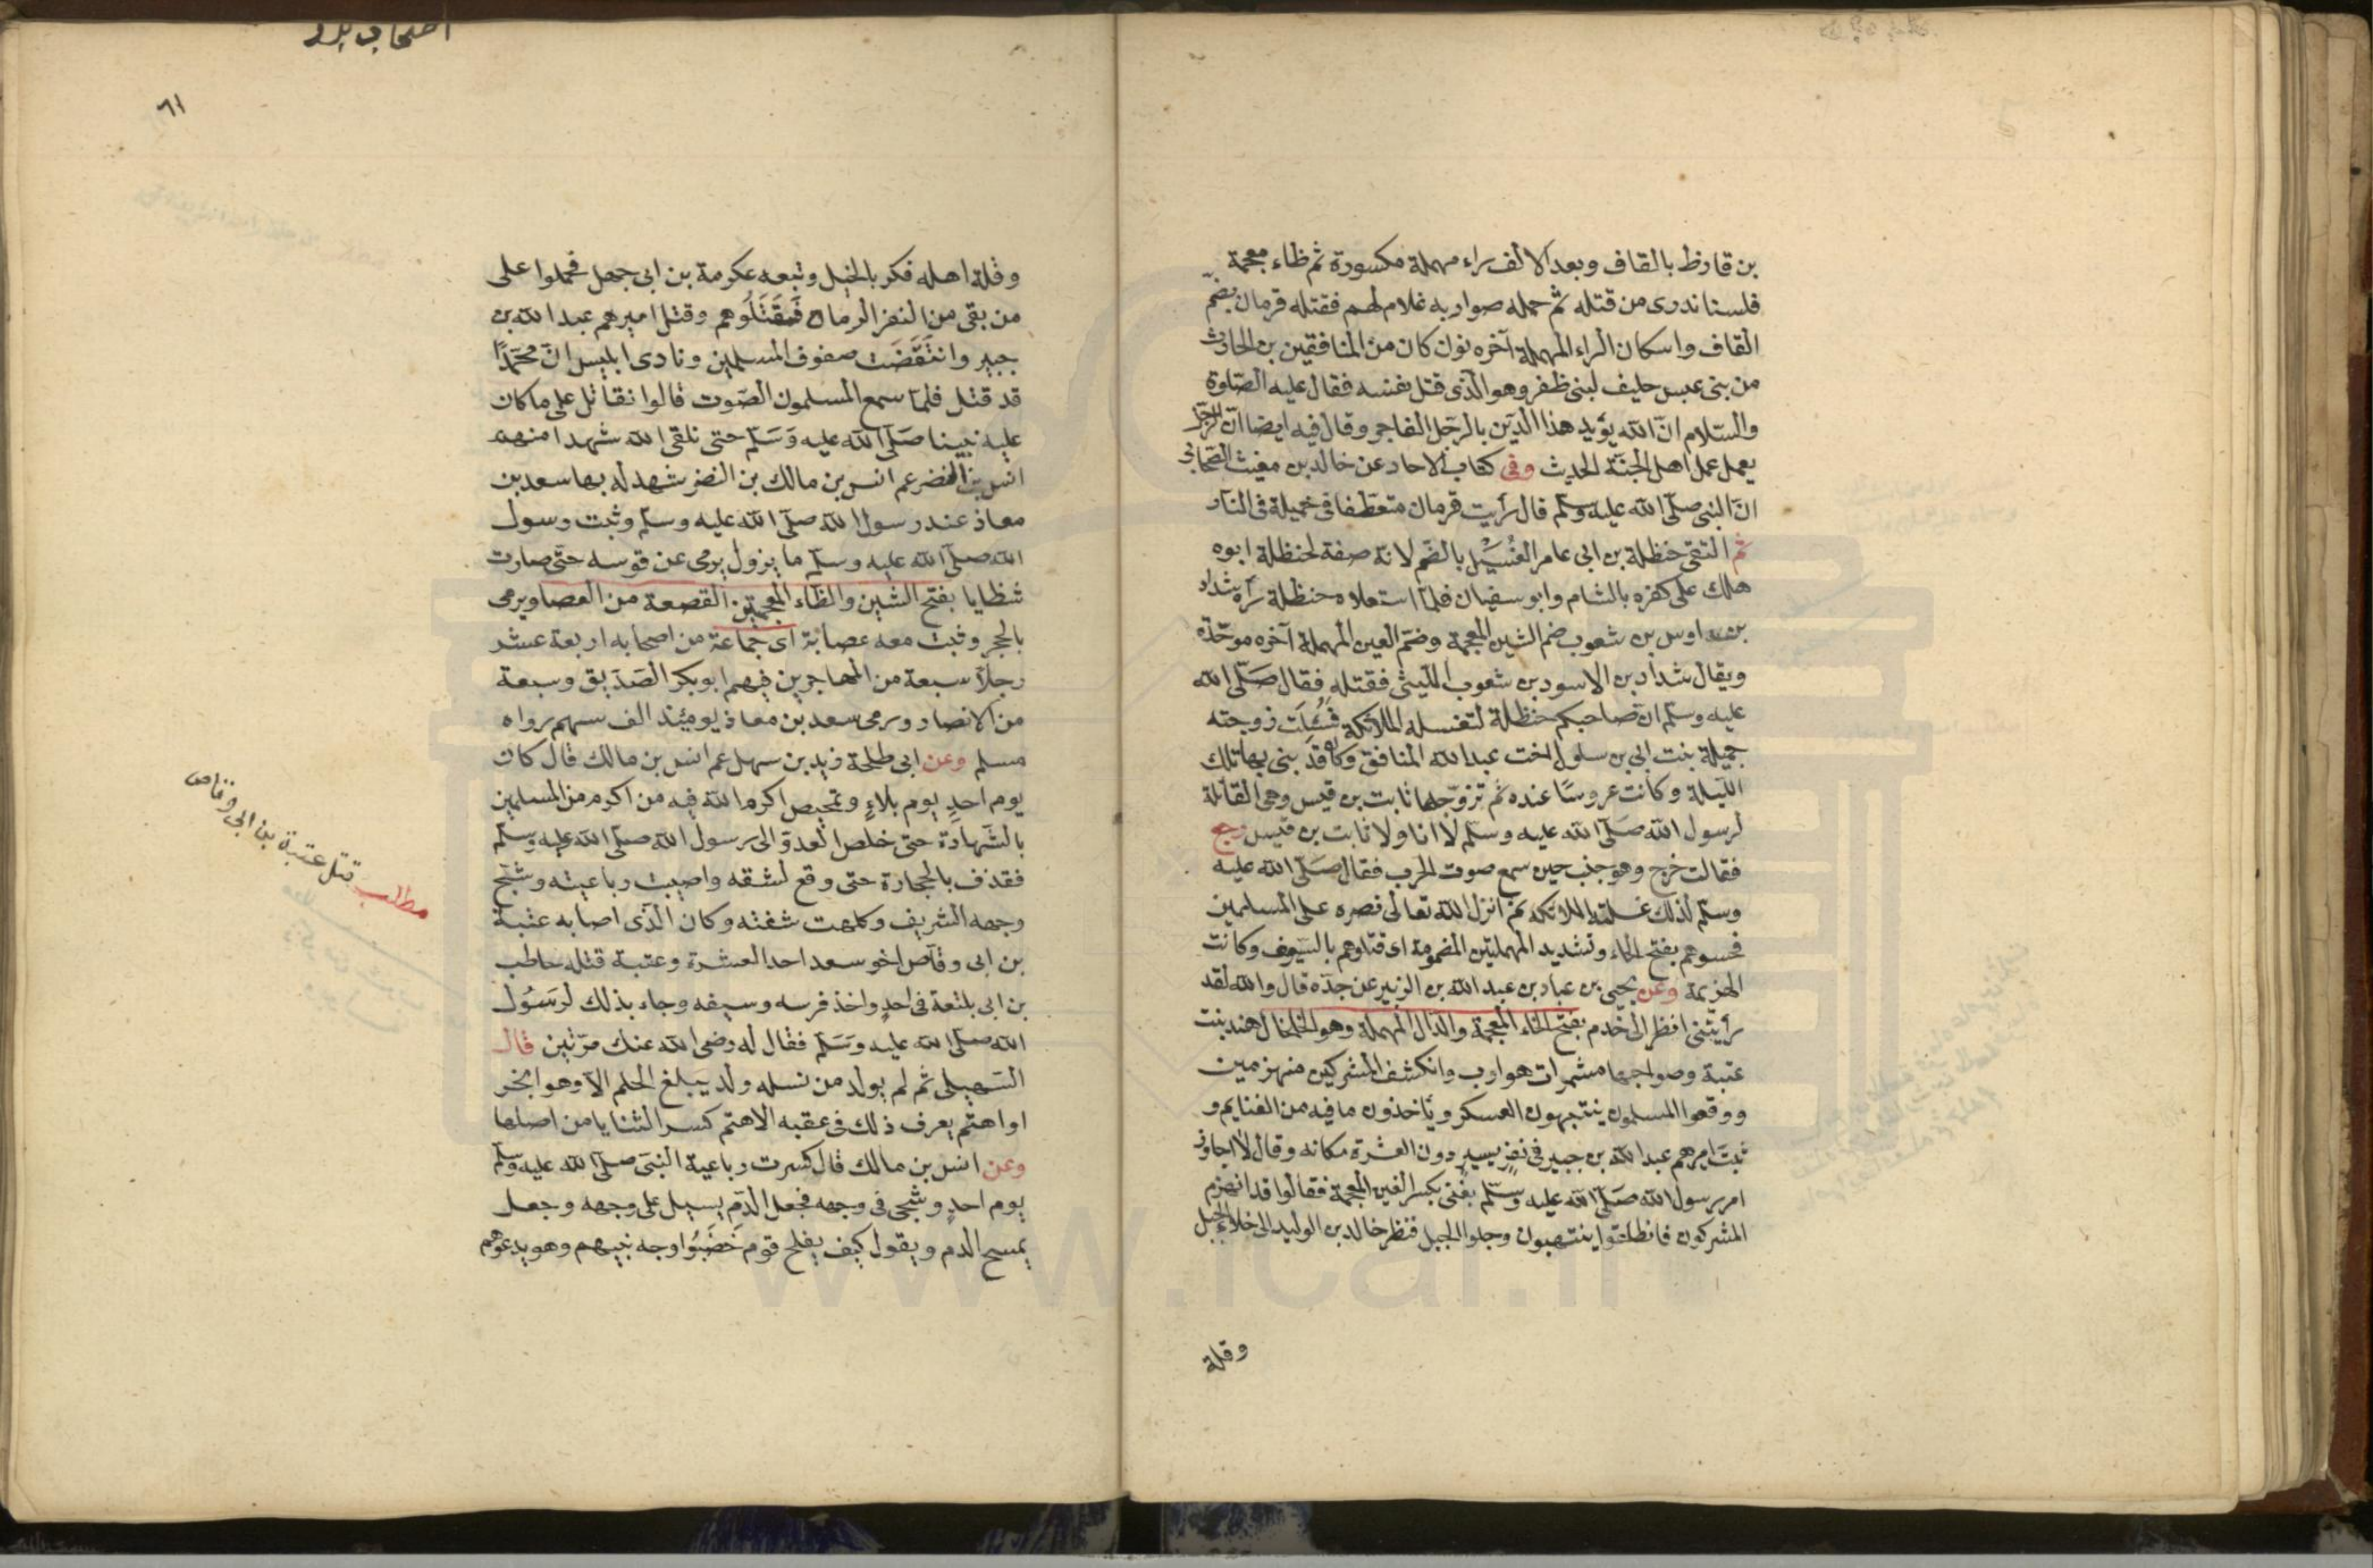 بن قارظ بالقاف وبعد الالف راء مهملة مكسورة ثم ظاء معجمة
فلسنا ندرى من قتله ثم حمله صواب به غلام لهم فقتله قزمان بضم
القاف واسكان الراء المهملة آخره نون كان من المنافقين بن الحارث
من بنى عبس حليف لبنى ظفر وهو الذى قتل نفسه فقال عليه الصلوة
والسلام ان الله يؤيد هذا الدين بالرجل الفاجر وقال فيه ايضا ان الرجل
يعمل عمل اهل الجنة الحديث وفى كتاب الاحاد عن خالد بن مغيث الصحابى
ان النبى صلى الله عليه وسلم قال رأيت قرمان متعطفا فى خميلة فى النار
ثم التقى حنظلة بن ابى عامر الغسيل بالضم لانه صفة لحنظلة ابوه
هلك على كفره بالشام وابو سفيان فلما استعلاه حنظلة رآه شداد
بن اوس بن شعوب ضم الشين المعجمة وضم العين المهملة آخره موحدة
ويقال شداد بن الاسود بن شعوب الليثى فقتله فقال صلى الله
عليه وسلم ان صاحبكم حنظلة لتغسله الملائكة فسئلت زوجته
جميلة بنت ابى بن سلول اخت عبد الله المنافق وكان قد بنى بها تلك
الليلة وكانت عروسا عنده ثم تزوجها ثابت بن قيس وهى القائلة
لرسول الله صلى الله عليه وسلم لا انا ولا ثابت بن قيس رجع
فقالت خرج وهو جنب حين سمع صوت الحرب فقال صلى الله عليه
وسلم لذلك غسلته الملائكة ثم انزل الله تعالى نصره على المسلمين
فحسوهم بفتح الحاء وتشديد المهملتين المضمومة اى قتلوهم بالسيوف وكانت
الهزيمة وعن يحيى بن عباد بن عبد الله بن الزبير عن جده قال والله لقد
رأيتنى انظر الى خدم بفتح الخاء المعجمة والدال المهملة وهو الخلخال هند بنت
عتبة وصواحبها مشمرات هوارب وانكشف المشركين منهزمين
ووقعوا المسلمون ينتهبون العسكر ويأخذون ما فيه من الغنايم و
ثبت اميرهم عبد الله بن جبير فى نفر يسير دون العشرة مكانه وقال لا اجاوز
امر رسول الله صلى الله عليه وسلم بغنى بكسر الغين المعجمة فقالوا قد انهزم
المشركون فانطلقوا ينتهبون وجلوا الجبل فنظر خالد بن الوليد الى خلاء الجبل
وقلة
اصحاب بدر
٦١
وقلة اهله فكر بالخيل وتبعه عكرمة بن ابى جهل فحملوا على
من بقى من النفر الرماة فقتلوهم وقتل اميرهم عبد الله بن
جبير وانتقضت صفوف المسلمين ونادى ابليس ان محمدا
قد قتل فلما سمع المسلمون الصوت قالوا نقاتل على ما كان
عليه نبينا صلى الله عليه وسلم حتى نلقى الله شهدا منهم
انس بن النضر عم انس بن مالك بن النضر شهد له بها سعد بن
معاذ عند رسول الله صلى الله عليه وسلم وثبت رسول
الله صلى الله عليه وسلم ما يزول يرمى عن قوسه حتى صارت
شظايا بفتح الشين والظاء المعجمتين القصعة من العصا ويرمى
بالحجر وثبت معه عصابة اى جماعة من اصحابه اربعة عشر
رجلا سبعة من المهاجرين فيهم ابو بكر الصديق وسبعة
من الانصار ورمى سعد بن معاذ يومئذ الف سهم رواه
مسلم وعن ابى طلحة زيد بن سهل عم انس بن مالك قال كان
يوم احد يوم بلاء وتمحيص اكرم الله فيه من اكرم من المسلمين
بالشهادة حتى خلص العدو الى رسول الله صلى الله عليه وسلم
فقذف بالحجارة حتى وقع لشقه واصيبت رباعيته وشج
وجهه الشريف وكلمت شفته وكان الذى اصابه عتبة
بن ابى وقاص اخو سعد احد العشرة وعتبة قتله حاطب
بن ابى بلتعة فى احد واخذ فرسه وسيفه وجاء بذلك لرسول
الله صلى الله عليه وسلم فقال له رضى الله عنك مرتين قال
السهيلى ثم لم يولد من نسله ولد يبلغ الحلم الا وهو ابخر
او اهتم يعرف ذلك فى عقبه الاهتم كسر الثنايا من اصلها
وعن انس بن مالك قال كسرت رباعية النبى صلى الله عليه وسلم
يوم احد وشج فى وجهه فجعل الدم يسيل على وجهه وجعل
يمسح الدم ويقول كيف يفلح قوم خضبوا وجه نبيهم وهو يدعوهم
مطلب قتل عتبة بن ابى وقاص
www.ical.ir